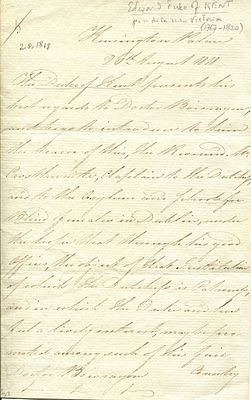 Edward Duke of KENT
(1767-1820)
Kensington Palace
26th August 1818
The Duke of Kent presents his
best regards to Doctor
and begs to introduce to him
the bearer of this, the Reverend Mr.
Chaplain to the Dutchess
and to the Asylum and School for
Blind Females in Dublin, under
the hope that through his good
Offices, the object of that Institution
of which The Dutchess is Patroness,
and in which The Duke and her
a lively interest, may be pro-
moted among such of the
Doctor Country